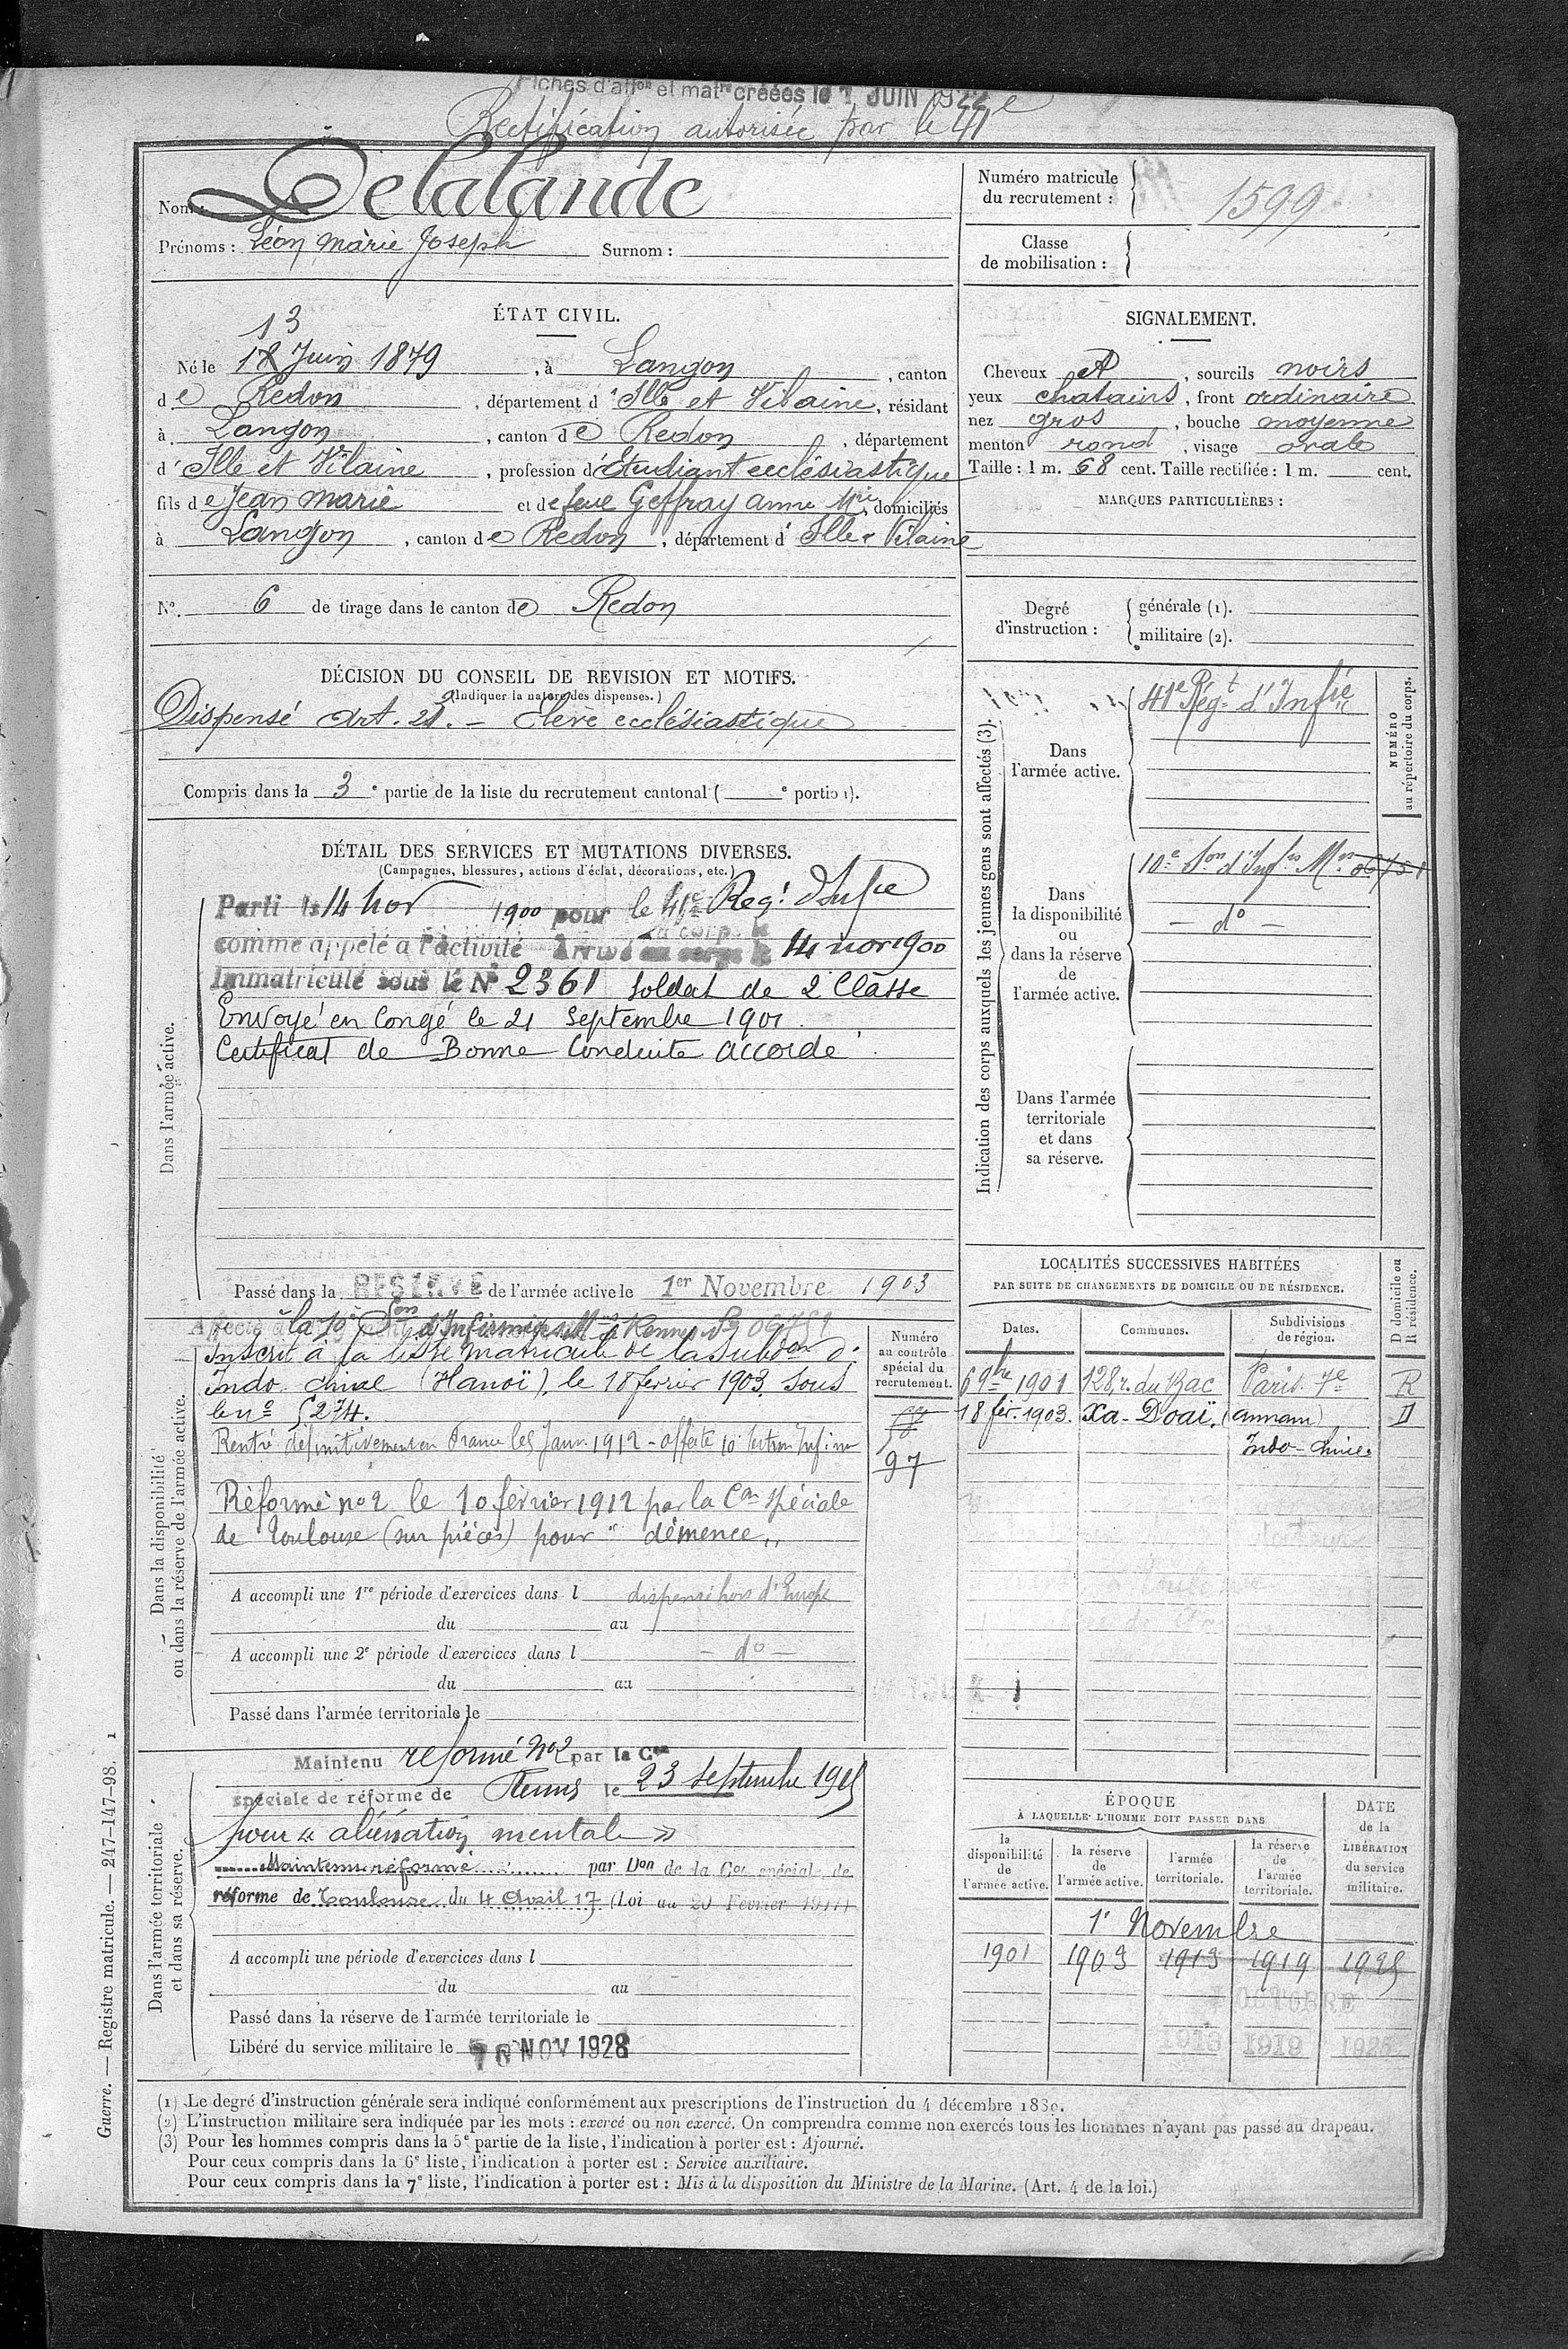 Fiches d'affon et matre créées le 1 JUIN 1922
Rectification autorisée par le 41e
Nom : Delalande
Prénoms : Léon Marie Joseph Surnom :
Numéro matricule du recrutement : 1599
Classe de mobilisation :
ÉTAT CIVIL.
13
Né le 18 Juin 1879, à Langon, canton
de Redon, département d'Ille et Vilaine, résidant
à Langon, canton de Redon, département
d'Ille et Vilaine, profession d'étudiant ecclésiastique
fils de Jean Marie et de feue Geffray Anne Mie, domiciliés
à Langon, canton de Redon, département d'Ille & Vilaine
No. 6 de tirage dans le canton de Redon
SIGNALEMENT.
Cheveux d°, sourcils noirs
yeux chatains, front ordinaire
nez gros, bouche moyenne
menton rond, visage ovale
Taille : 1 m. 68 cent. Taille rectifiée : 1 m. cent.
MARQUES PARTICULIÈRES :
Degré d'instruction : générale (1).
militaire (2).
DÉCISION DU CONSEIL DE REVISION ET MOTIFS.
(Indiquer la nature des dispenses.)
Dispensé Art. 23. - élève ecclésiastique
Compris dans la 3e partie de la liste du recrutement cantonal ( e portion).
DÉTAIL DES SERVICES ET MUTATIONS DIVERSES.
(Campagnes, blessures, actions d'éclat, décorations, etc.)
Dans l'armée active.
Parti le 14 nov 1900 pour le 41e Reg.t d'Infie
comme appelé à l'activité Arrivé au corps le 14 nov 1900
Immatriculé sous le No 2361 soldat de 2e Classe
Envoyé en Congé le 21 Septembre 1901.
Certificat de Bonne Conduite accordé.
Passé dans la RÉSERVE de l'armée active le 1er Novembre 1903
Indication des corps auxquels les jeunes gens sont affectés (3).
NUMÉRO au répertoire du corps.
Dans l'armée active.
41e Rég.t d'Infie
Dans la disponibilité ou dans la réserve de l'armée active.
10e Son d'Infres Mres 06751
- d° -
Dans l'armée territoriale et dans sa réserve.
Dans la disponibilité ou dans la réserve de l'armée active.
Affecté à la 10e Son d'Infirmiers Mres à Rennes So 06751
Inscrit à la liste matricule de la Subdon d'
Indo-chine (Hanoï), le 18 février 1903. sous
le no 5274.
Rentré définitivement en France le 5 Janv. 1912 - affecté 10e section Infirm
Réformé no 2 le 10 février 1912 par la Con spéciale
de Toulouse (sur pièces) pour "démence"
A accompli une 1re période d'exercices dans l dispensé hors d'Europe
du au
A accompli une 2e période d'exercices dans l - d° -
du au
Passé dans l'armée territoriale le
Numéro au contrôle spécial du recrutement.
97
LOCALITÉS SUCCESSIVES HABITÉES
PAR SUITE DE CHANGEMENTS DE DOMICILE OU DE RÉSIDENCE.
D domicile ou R résidence.
Dates. Communes. Subdivisions de région.
6 9bre 1901 128, r. du Bac Paris 7e R
18 fév. 1903. Xa-Doaï, (annam) D
Indo-chine
Dans l'armée territoriale et dans sa réserve.
Maintenu réformé No 2 par la Con
spéciale de réforme de Rennes le 23 septembre 1915
pour « aliénation mentale »
Maintenu réformé par Don de la Con spéciale de
réforme de Toulouse du 4 Avril 17 (Loi du 20 Février 1917)
A accompli une période d'exercices dans l
du au
Passé dans la réserve de l'armée territoriale le
Libéré du service militaire le 10 NOV 1928
ÉPOQUE
À LAQUELLE L'HOMME DOIT PASSER DANS
la disponibilité de l'armée active.
la réserve de l'armée active.
l'armée territoriale.
la réserve de l'armée territoriale.
DATE de la LIBÉRATION du service militaire.
1er Novembre
1901 1903 1913 1919 1925
1 OCTOBRE
1913 1919 1925
(1) Le degré d'instruction générale sera indiqué conformément aux prescriptions de l'instruction du 4 décembre 1889.
(2) L'instruction militaire sera indiquée par les mots : exercé ou non exercé. On comprendra comme non exercés tous les hommes n'ayant pas passé au drapeau.
(3) Pour les hommes compris dans la 5e partie de la liste, l'indication à porter est : Ajourné.
Pour ceux compris dans la 6e liste, l'indication à porter est : Service auxiliaire.
Pour ceux compris dans la 7e liste, l'indication à porter est : Mis à la disposition du Ministre de la Marine. (Art. 4 de la loi.)
Guerre. — Registre matricule. — 247-147-98. 1